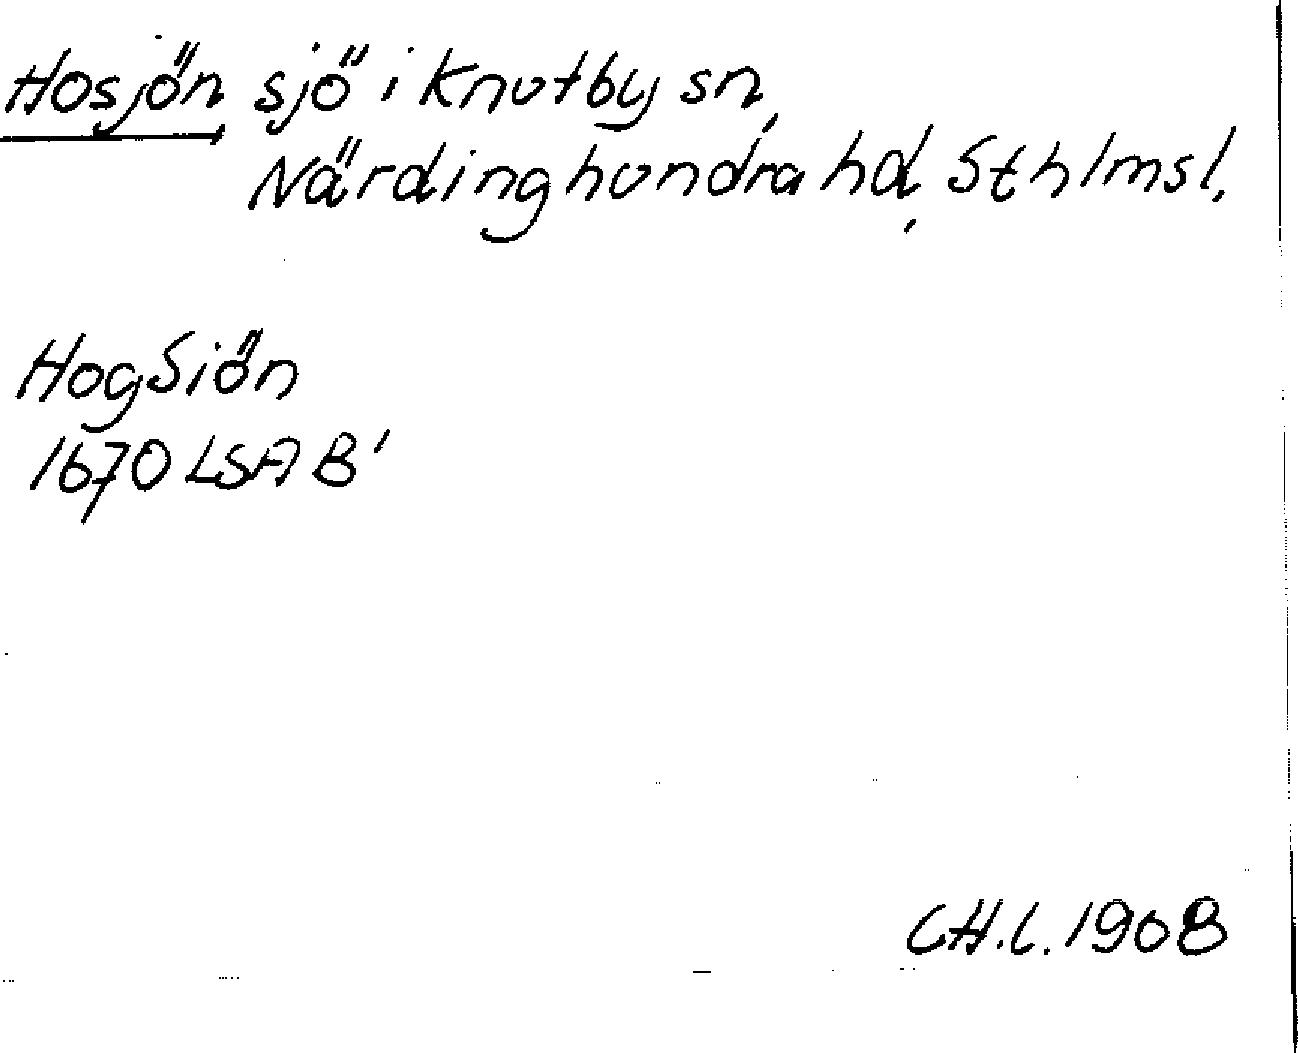 Hosjön, sjö i Knutby sn,
Närdinghundra hd, Sthlmsl.
HogSiön
1670 LSA B'
CH.L. 1908